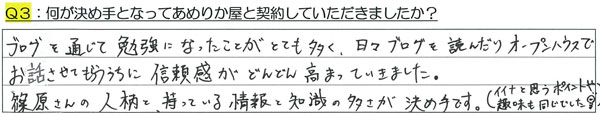 Q3：何が決め手となってあめりか屋と契約していただきましたか？
ブログを通じて勉強になったことがとても多く、日々ブログを読んだりオープンハウスで
お話させて頂うちに信頼感がどんどん高まっていきました。
篠原さんの人柄と、持っている情報と知識の多さが決め手です。(イイナと思うポイントや、
趣味も同じでした